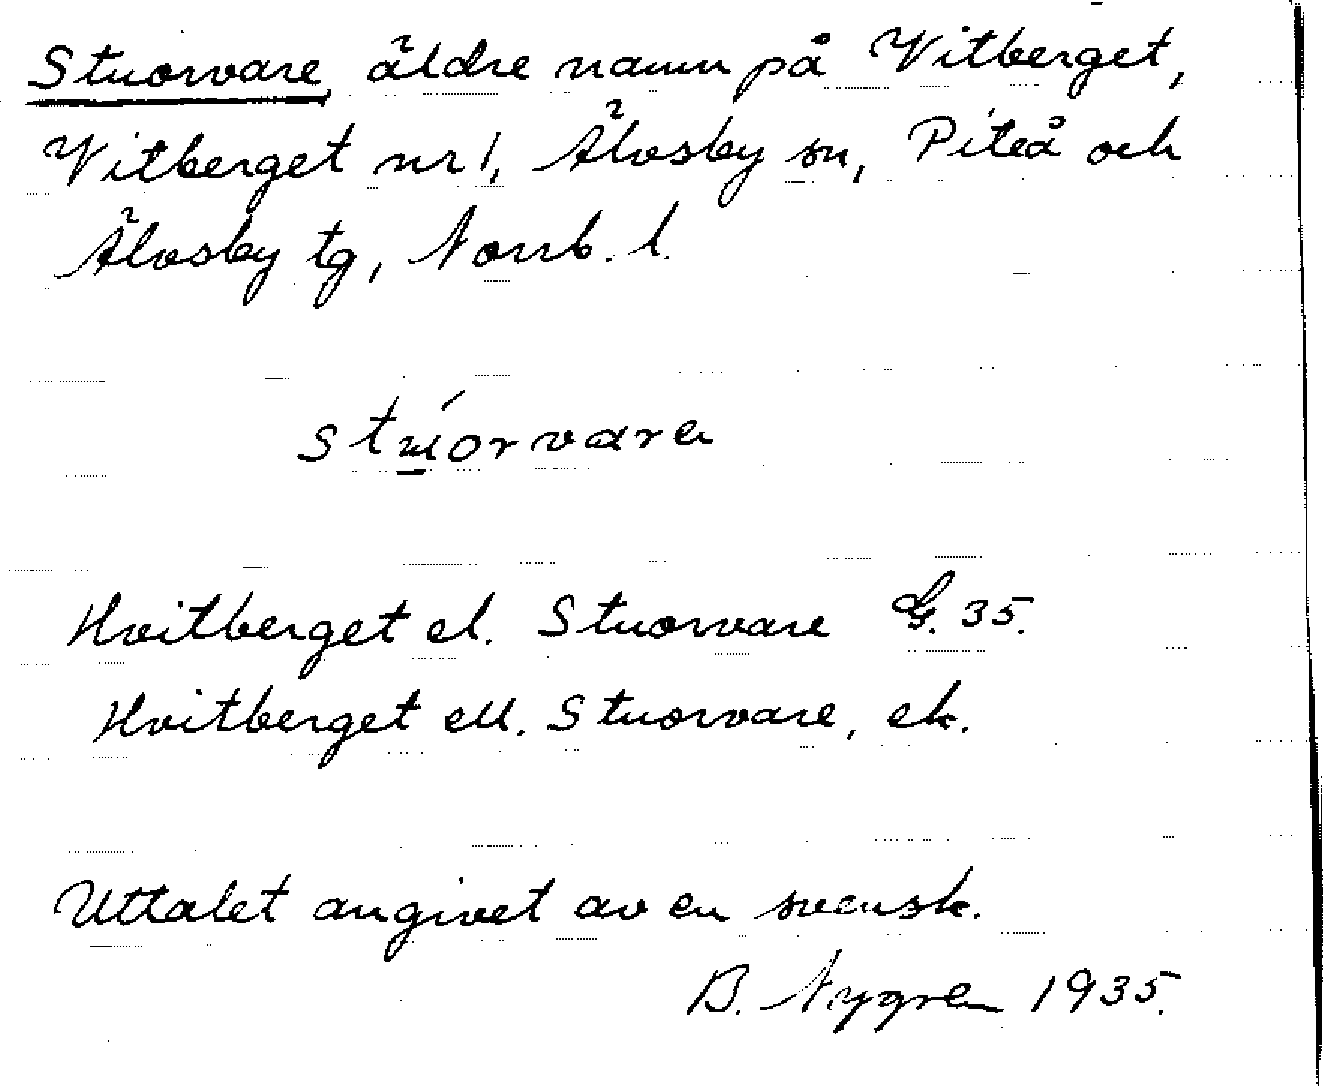 Stuorvare, äldre namn på Vitberget,
Vitberget nr 1, Älvsby sn, Piteå och
Älvsby tg, Norrb. l.
stúorvare
Hvitberget el. Stuorvare G. 35.
Hvitberget ell. Stuorvare, ek.
Uttalet angivet av en svensk.
B. Nygren 1935.